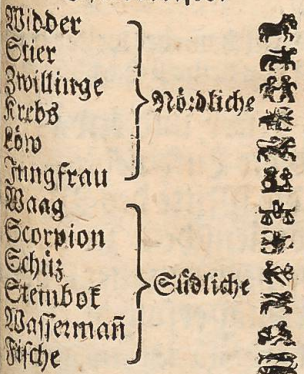 Widder
Stier
Zwillinge
Krebs
Löw
Jungfrau
Nördliche
Waag
Scorpion
Schüz
Steinbok
Wassermañ
Fische
Südliche